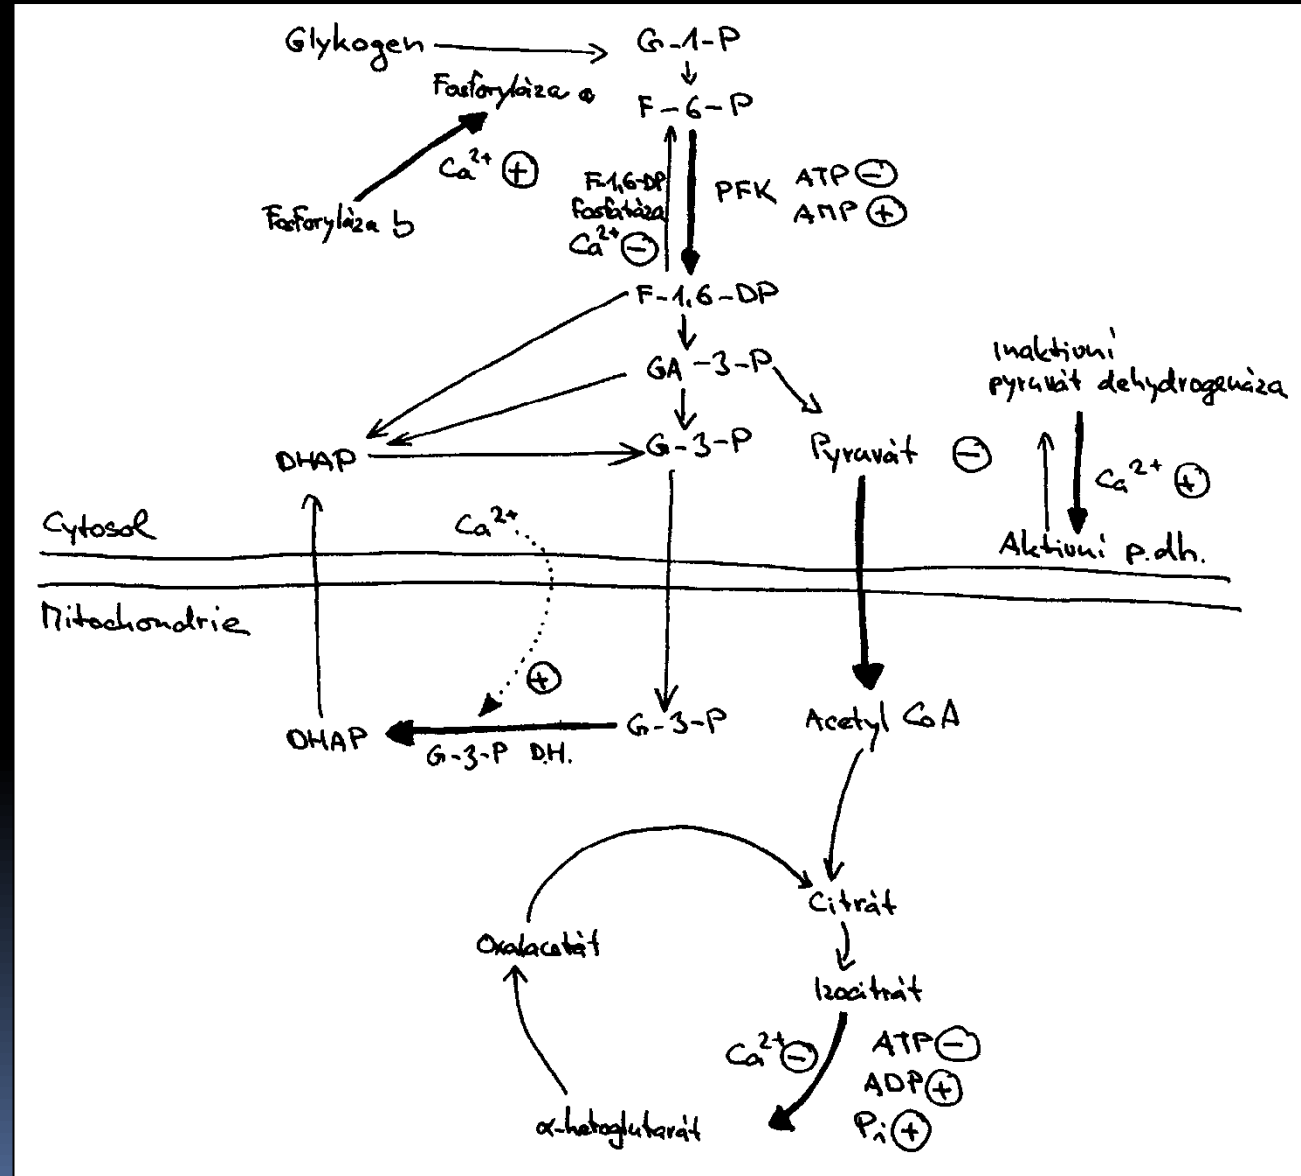 Glykogen
G-1-P
Fosforyláza a
F-6-P
Ca²⁺ ⊕
Fosforyláza b
F-1,6-DP
Fosfatáza
Ca²⁺ ⊖
PFK ATP ⊖
AMP ⊕
F-1,6-DP
GA-3-P
Inaktivní
pyruvát dehydrogenáza
DHAP
G-3-P
Pyruvát ⊖
Ca²⁺ ⊕
Aktivní p.dh.
Cytosol
Ca²⁺
Mitochondrie
⊕
DHAP
G-3-P D.H.
G-3-P
Acetyl CoA
Citrát
Oxalacetát
Izocitrát
Ca²⁺ ⊖
ATP ⊖
ADP ⊕
Pi ⊕
α-ketoglutarát